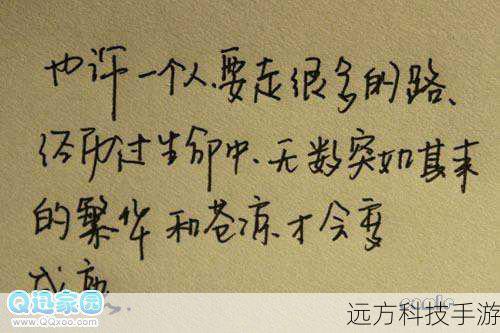 也许一个人、要走很多的路、
经历过生命中、无数突如其来
的繁华和苍凉、才会变
成熟
Q迅家园
www.QQxoo.com
远方科技手游